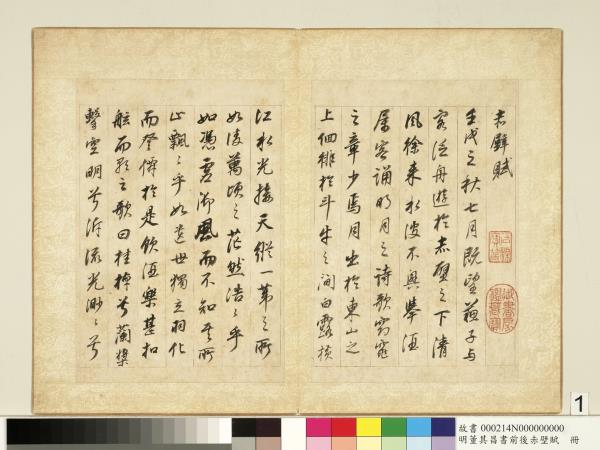 赤壁賦
壬戌之秋七月既望蘇子與
客泛舟遊於赤壁之下清
風徐來水波不興舉酒
屬客誦明月之詩歌窈窕
之章少焉月出於東山之
上徊徘於斗牛之間白露橫
江水光接天縱一葦之所
如凌萬頃之茫然浩〻乎
如馮虛御風而不知其所
止飄〻乎如遺世獨立羽化
而登僊於是飲酒樂甚扣
舷而歌之歌曰桂棹兮蘭槳
擊空明兮泝流光渺〻兮
1
故書 000214N000000000
明董其昌書前後赤壁賦 冊